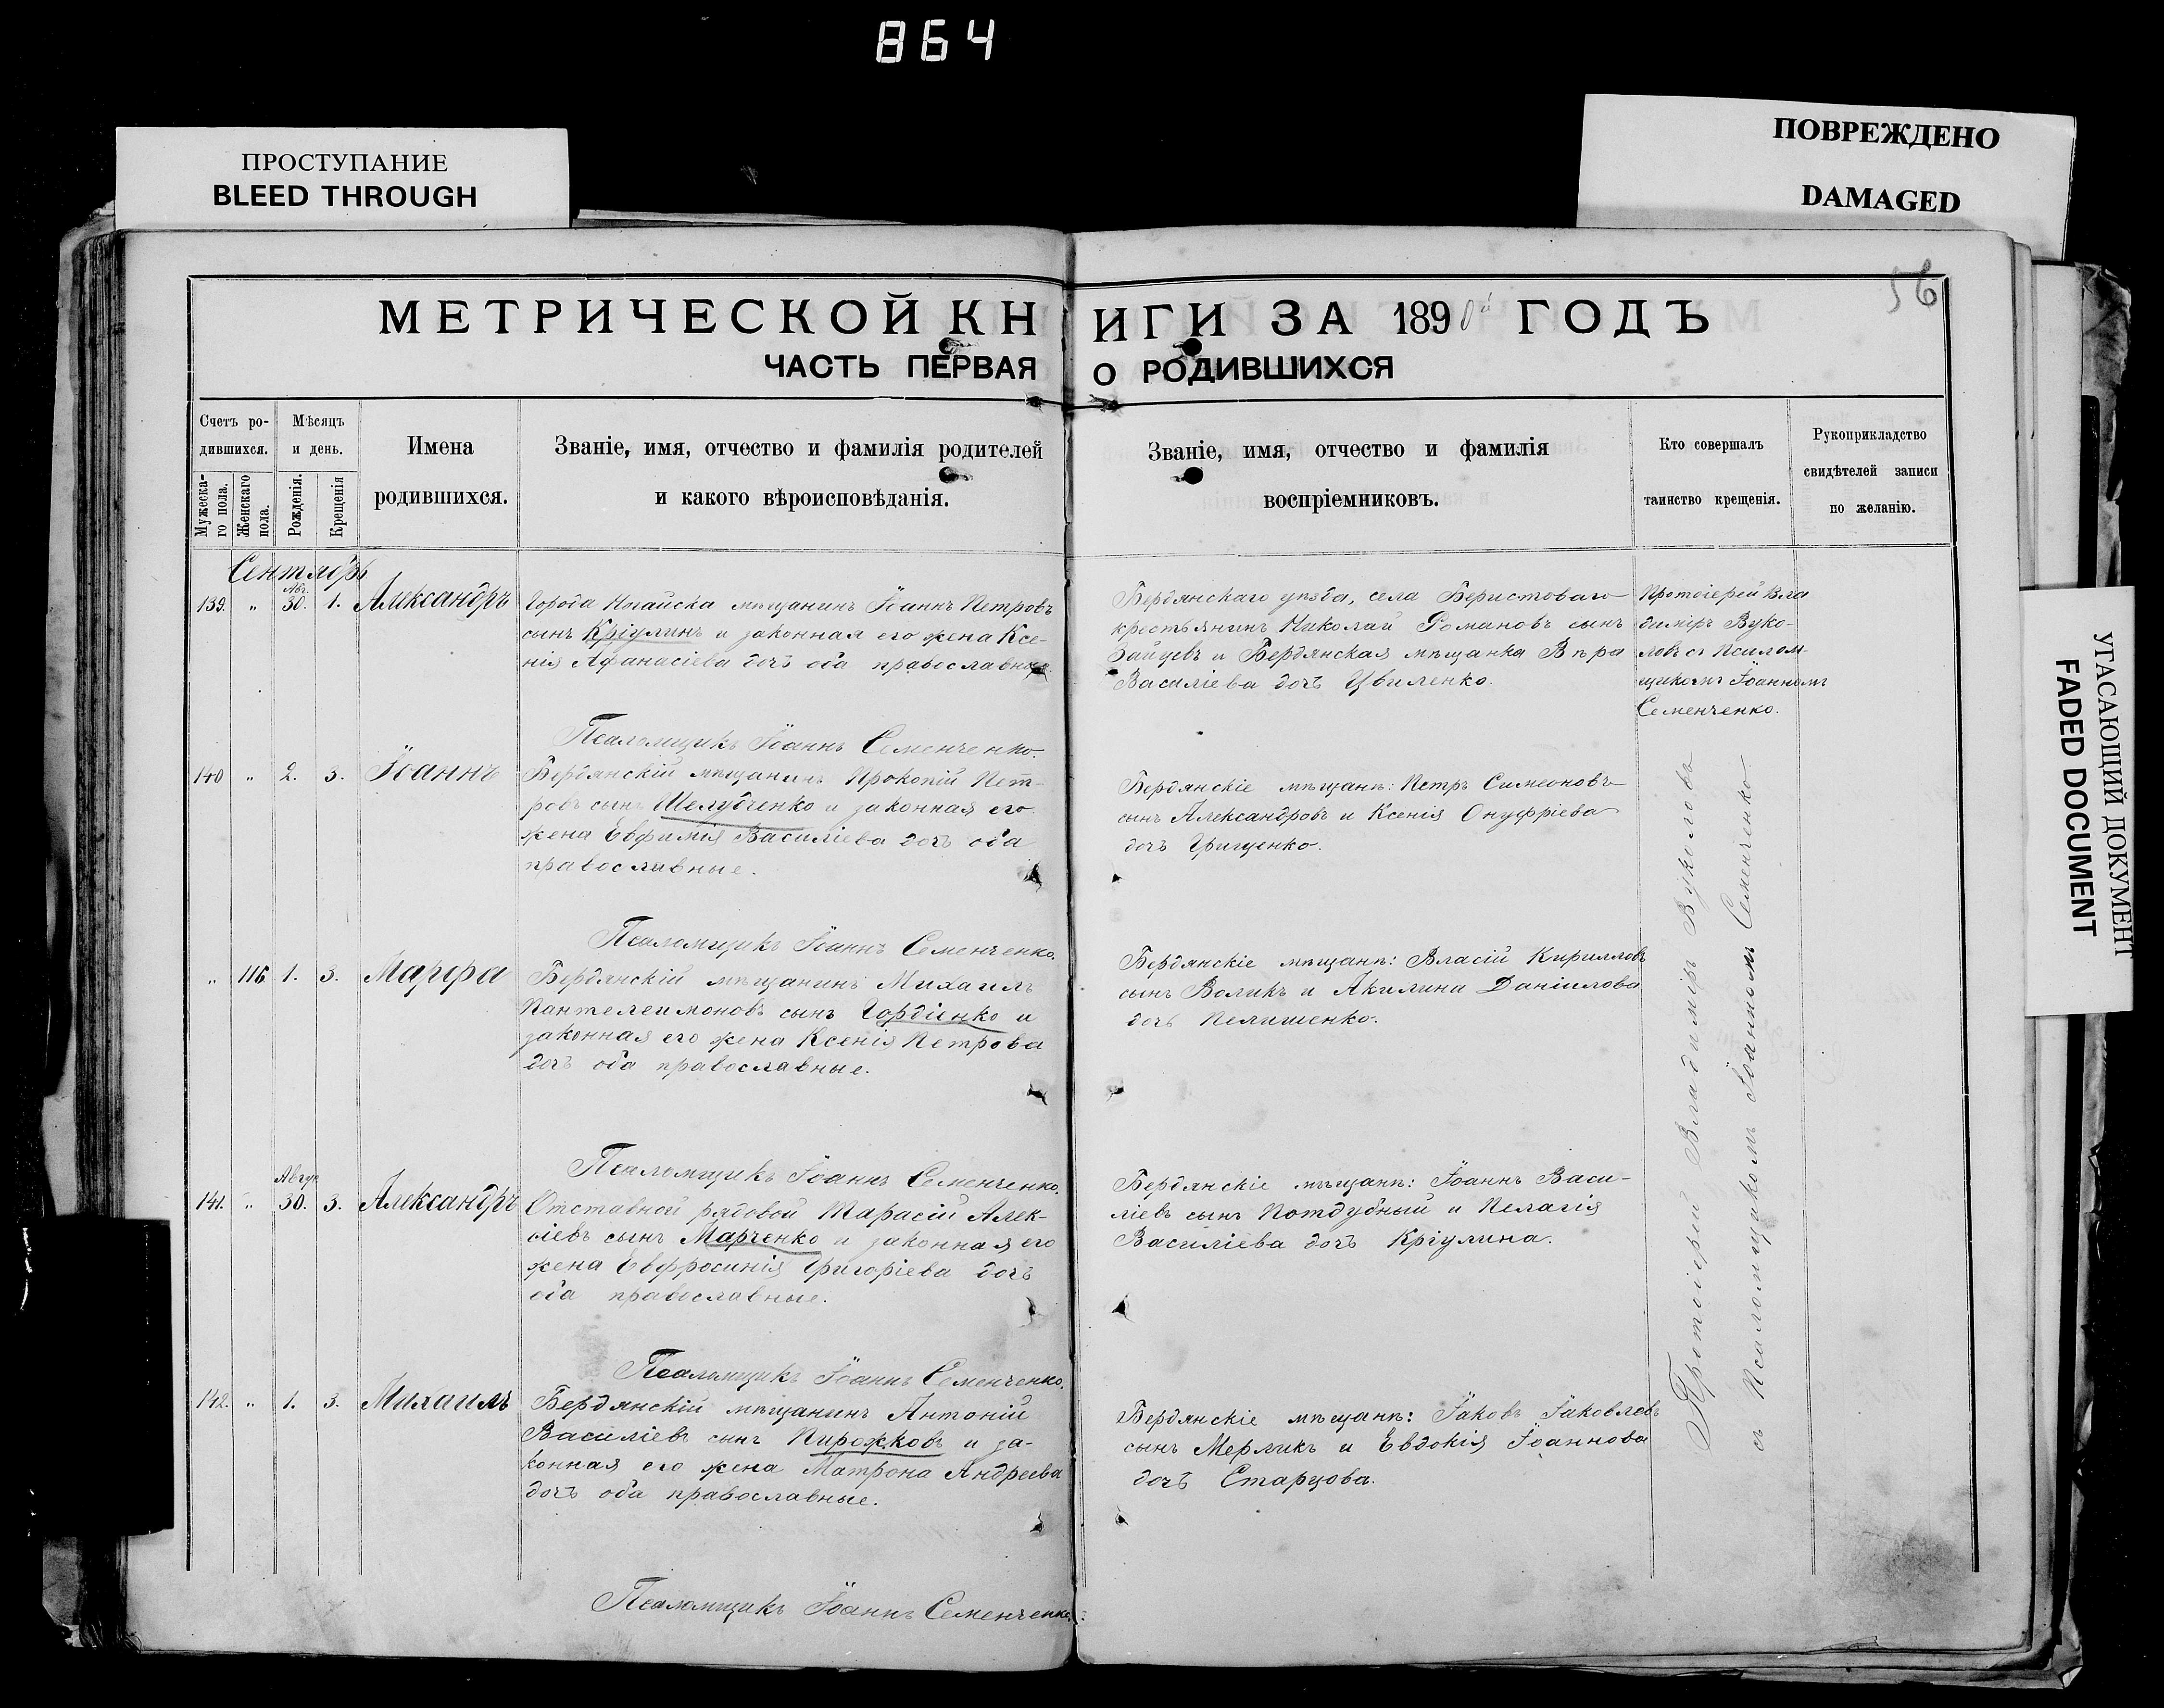 864
ПРОСТУПАНИЕ
BLEED THROUGH
ПОВРЕЖДЕНО
DAMAGED
УГАСАЮЩИЙ ДОКУМЕНТ
FADED DOCUMENT
56
МЕТРИЧЕСКОЙ КНИГИ ЗА 1890й ГОДЪ
ЧАСТЬ ПЕРВАЯ О РОДИВШИХСЯ
Счетъ ро-
дившихся.
Мужеска-
го пола.
Женскаго
пола.
Мѣсяцъ
и день.
Рожденія.
Крещенія
Имена
родившихся.
Званіе, имя, отчество и фамилія родителей
и какого вѣроисповѣданія.
Званіе, имя, отчество и фамилія
воспріемниковъ.
Кто совершалъ
таинство крещенія.
Рукоприкладство
свидѣтелей записи
по желанію.
Сентябрь
139. " Авг. 30. 1. Александръ
Города Ногайска мѣщанинъ Іоаннъ Петровъ
сынъ Кріулинъ и законная его жена Ксе-
нія Афанасіева дочь оба православные
Бердянскаго уѣзда, села Берестоваго
крестьянинъ Николай Романовъ сынъ
Зайцевъ и Бердянская мѣщанка Вѣра
Василіева дочь Цвиленко.
Протоіерей Вла
диміръ Вуко-
ловъ съ Псалом-
щикомъ Іоанномъ
Семенченко.
Псаломщикъ Іоаннъ Семенченко.
140 " 2. 3. Іоаннъ
Бердянскій мѣщанинъ Прокопій Пет-
ровъ сынъ Шелудченко и законная его
жена Евфимія Василіева дочь оба
православные.
Бердянскіе мѣщане: Петръ Симеоновъ
сынъ Александровъ и Ксенія Онуфріева
дочь Грищенко.
Псаломщикъ Іоаннъ Семенченко.
" 116 1. 3. Марфа
Бердянскій мѣщанинъ Михаилъ
Пантелеимоновъ сынъ Гордіенко и
законная его жена Ксенія Петрова
дочь оба православные.
Бердянскіе мѣщане: Власій Кирилловъ
сынъ Воликъ и Акилина Даніилова
дочь Пелишенко.
Псаломщикъ Іоаннъ Семенченко.
141. " Авгус 30. 3. Александръ
Отставной рядовой Тарасій Алек-
сіевъ сынъ Марченко и законная его
жена Евфросинія Григоріева дочь
оба православные.
Бердянскіе мѣщане: Іоаннъ Васи-
ліевъ сынъ Потдубный и Пелагія
Василіева дочь Кріулина.
Псаломщикъ Іоаннъ Семенченко.
142. " 1. 3. Михаилъ
Бердянскій мѣщанинъ Антоній
Василіевъ сынъ Пирожковъ и за-
конная его жена Матрона Андреева
дочь оба православные.
Бердянскіе мѣщане: Іаковъ Іаковлевъ
сынъ Мерликъ и Евдокія Іоаннова
дочь Старцова.
Протоіерей Владиміръ Вуколовъ
съ Псаломщикомъ Іоанномъ Семенченко
Псаломщикъ Іоаннъ Семенченко.